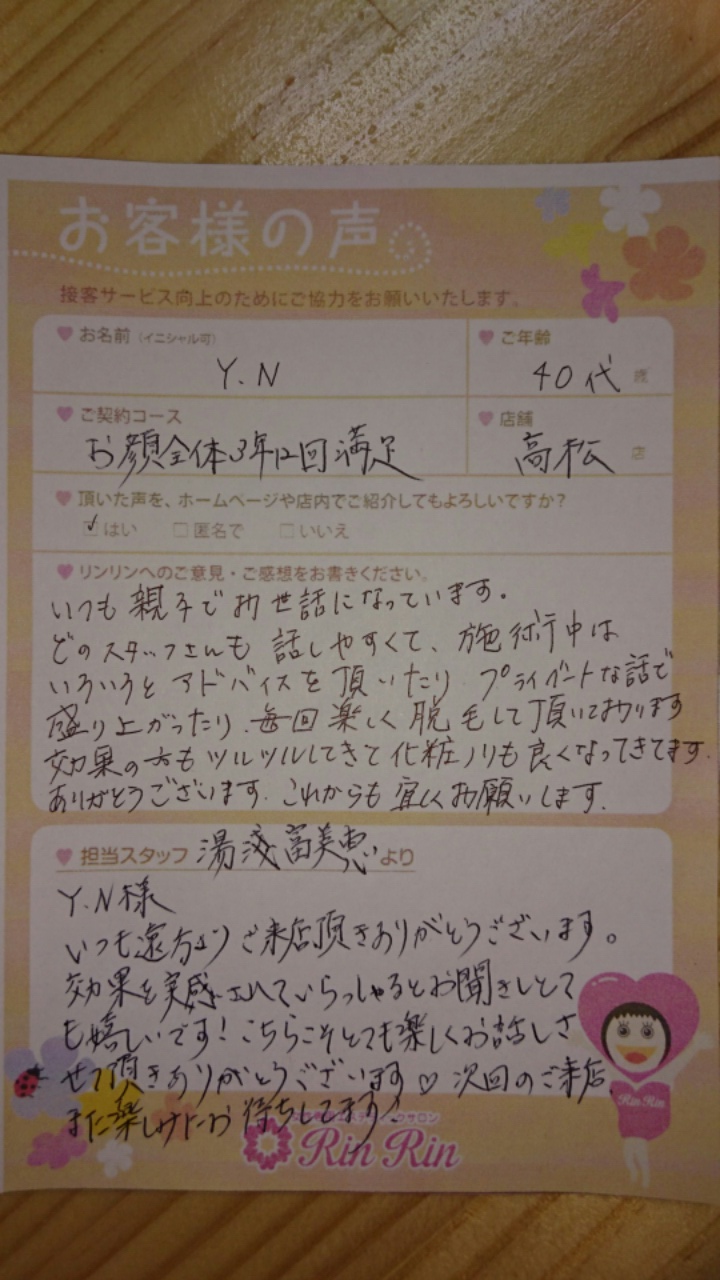 お客様の声
接客サービス向上のためにご協力をお願いいたします。
お名前（イニシャル可）
Y.N
ご年齢
40代 歳
ご契約コース
お顔全体3年12回満足
店舗
高松 店
頂いた声を、ホームページや店内でご紹介してもよろしいですか？
✓はい □匿名で □いいえ
リンリンへのご意見・ご感想をお書きください。
いつも親子でお世話になっています。
どのスタッフさんも話しやすくて、施術中は
いろいろとアドバイスを頂いたり プライベートな話で
盛り上がったり、毎回楽しく脱毛して頂いております
効果の方もツルツルしてきて化粧ノリも良くなってきてます.
ありがとうございます. これからも宜しくお願いします.
担当スタッフ 湯淺富美恵より
Y.N様
いつも遠方よりご来店頂きありがとうございます。
効果を実感されていらっしゃるとお聞きしとて
も嬉しいです！こちらこそとても楽しくお話しさ
せて頂きありがとうございます♡ 次回のご来店、
また楽しみにお待ちしてます！
サロン
Rin Rin
Rin Rin